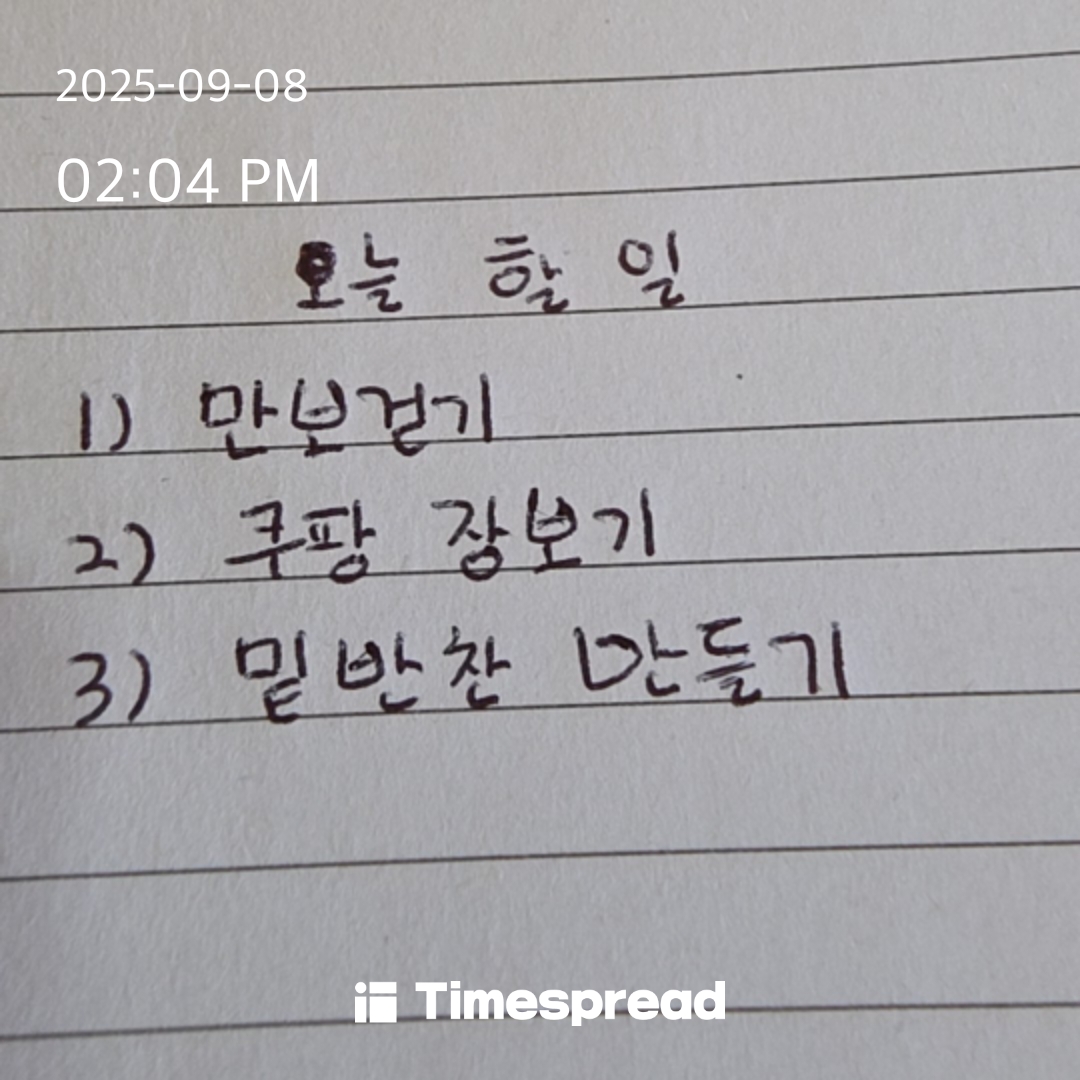 2025-09-08
02:04 PM
오늘 할 일
1) 만보걷기
2) 쿠팡 장보기
3) 밑반찬 만들기
Timespread